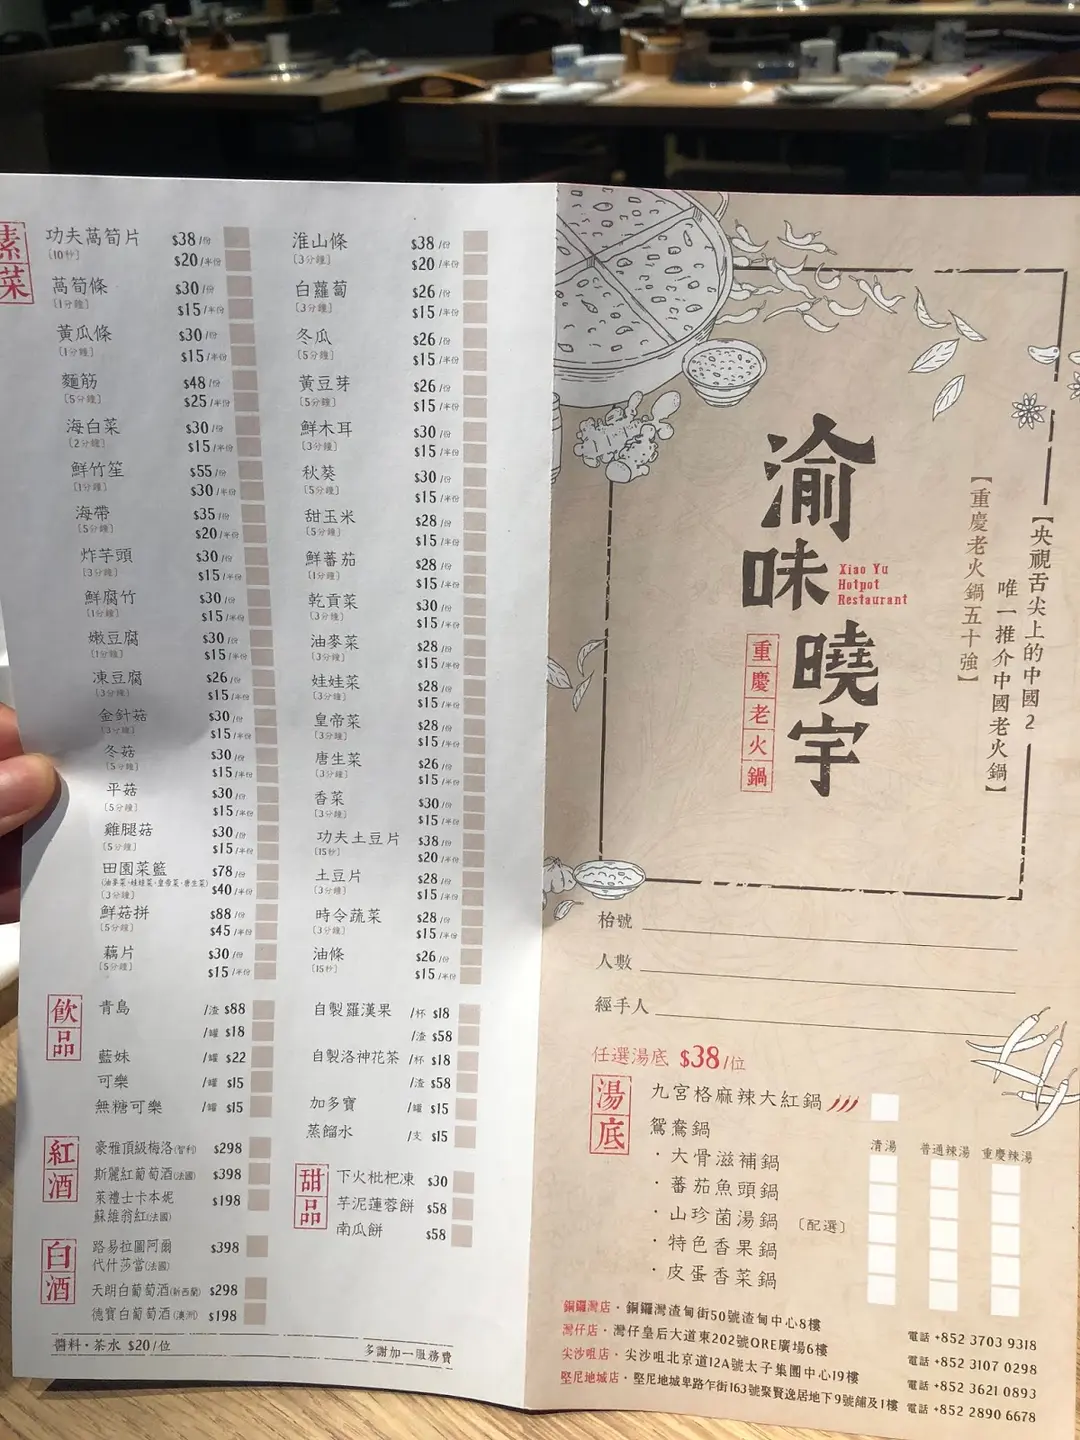 素菜
功夫萵筍片 $38/份
(10秒) $20/半份
萵筍條 $30/份
(1分鐘) $15/半份
黃瓜條 $30/份
(1分鐘) $15/半份
麵筋 $48/份
(5分鐘) $25/半份
海白菜 $30/份
(2分鐘) $15/半份
鮮竹笙 $55/份
(1分鐘) $30/半份
海帶 $35/份
(5分鐘) $20/半份
炸芋頭 $30/份
(3分鐘) $15/半份
鮮腐竹 $30/份
(1分鐘) $15/半份
嫩豆腐 $30/份
(1分鐘) $15/半份
凍豆腐 $26/份
(3分鐘) $15/半份
金針菇 $30/份
(3分鐘) $15/半份
冬菇 $30/份
(5分鐘) $15/半份
平菇 $30/份
(5分鐘) $15/半份
雞腿菇 $30/份
(5分鐘) $15/半份
田園菜籃 $78/份
(油麥菜·娃娃菜·皇帝菜·唐生菜) $40/半份
(3分鐘)
鮮菇拼 $88/份
(5分鐘) $45/半份
藕片 $30/份
(5分鐘) $15/半份
淮山條 $38/份
(3分鐘) $20/半份
白蘿蔔 $26/份
(3分鐘) $15/半份
冬瓜 $26/份
(5分鐘) $15/半份
黃豆芽 $26/份
(5分鐘) $15/半份
鮮木耳 $30/份
(3分鐘) $15/半份
秋葵 $30/份
(5分鐘) $15/半份
甜玉米 $28/份
(5分鐘) $15/半份
鮮蕃茄 $28/份
(1分鐘) $15/半份
乾貢菜 $30/份
(3分鐘) $15/半份
油麥菜 $28/份
(3分鐘) $15/半份
娃娃菜 $28/份
(3分鐘) $15/半份
皇帝菜 $28/份
(3分鐘) $15/半份
唐生菜 $26/份
(3分鐘) $15/半份
香菜 $30/份
(3分鐘) $15/半份
功夫土豆片 $38/份
(15秒) $20/半份
土豆片 $28/份
(3分鐘) $15/半份
時令蔬菜 $28/份
(3分鐘) $15/半份
油條 $26/份
(15秒) $15/半份
飲品
青島 /渣 $88
/罐 $18
藍妹 /罐 $22
可樂 /罐 $15
無糖可樂 /罐 $15
自製羅漢果 /杯 $18
/渣 $58
自製洛神花茶 /杯 $18
/渣 $58
加多寶 /罐 $15
蒸餾水 /支 $15
紅酒
豪雅頂級梅洛(智利) $298
斯麗紅葡萄酒(法國) $398
萊禮士卡本妮 $198
蘇維翁紅(法國)
白酒
路易拉圖阿爾 $398
代什莎當(法國)
天朗白葡萄酒(新西蘭) $298
德寶白葡萄酒(澳洲) $198
甜品
下火枇杷凍 $30
芋泥蓮蓉餅 $58
南瓜餅 $58
醬料·茶水 $20/位
多謝加一服務費
【央視舌尖上的中國2
唯一推介中國老火鍋】
【重慶老火鍋五十強】
渝味曉宇
Xiao Yu
Hotpot
Restaurant
重慶老火鍋
枱號
人數
經手人
任選湯底 $38/位
湯底
九宮格麻辣大紅鍋
鴛鴦鍋 清湯 普通辣湯 重慶辣湯
·大骨滋補鍋
·蕃茄魚頭鍋
·山珍菌湯鍋 〔配選〕
·特色香果鍋
·皮蛋香菜鍋
銅鑼灣店·銅鑼灣渣甸街50號渣甸中心8樓 電話 +852 3703 9318
灣仔店·灣仔皇后大道東202號QRE廣場6樓 電話 +852 3107 0298
尖沙咀店·尖沙咀北京道12A號太子集團中心19樓 電話 +852 3621 0893
堅尼地城店·堅尼地城卑路乍街163號聚賢逸居地下9號舖及1樓 電話 +852 2890 6678